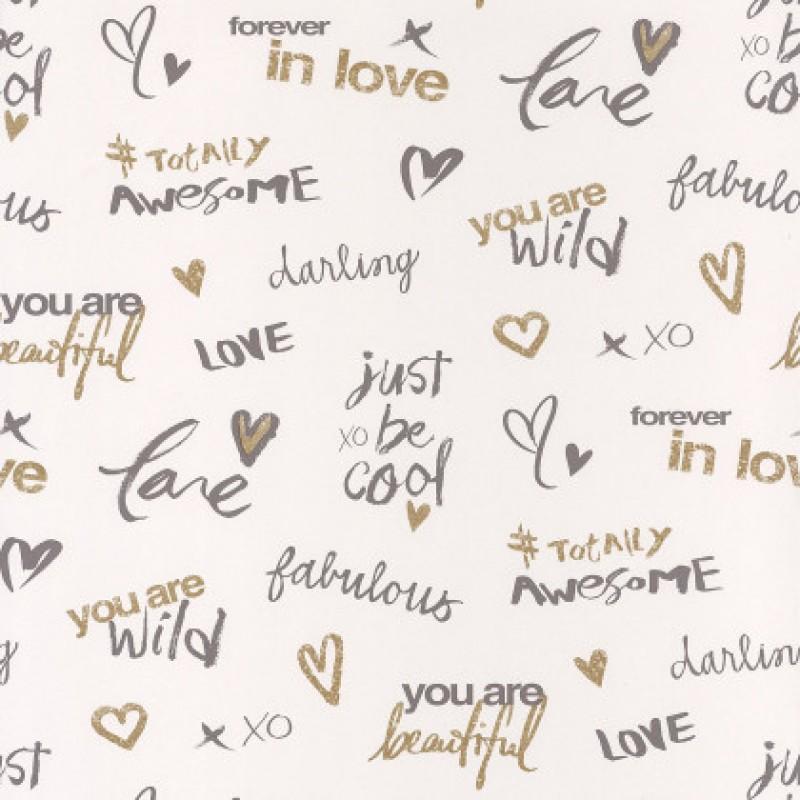 be
ol
forever
in love
love
xo b
co
# TOTALLY
AWESOME
us
fabulo
you are
wild
darling
you are
beautiful
LOVE
xXO
just
xo be
cool
ve
love
forever
in lov
# TOTALLY
AWESOME
fabulous
you are
wild
g
darlin
you are
beautiful
xXO
LOVE
st
ju